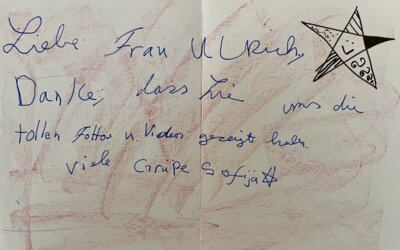 Liebe Frau Ulrich,
Danke, dass Sie uns die
tollen Fottos u. Videos gezeigt haben.
Viele Grüße Sofija